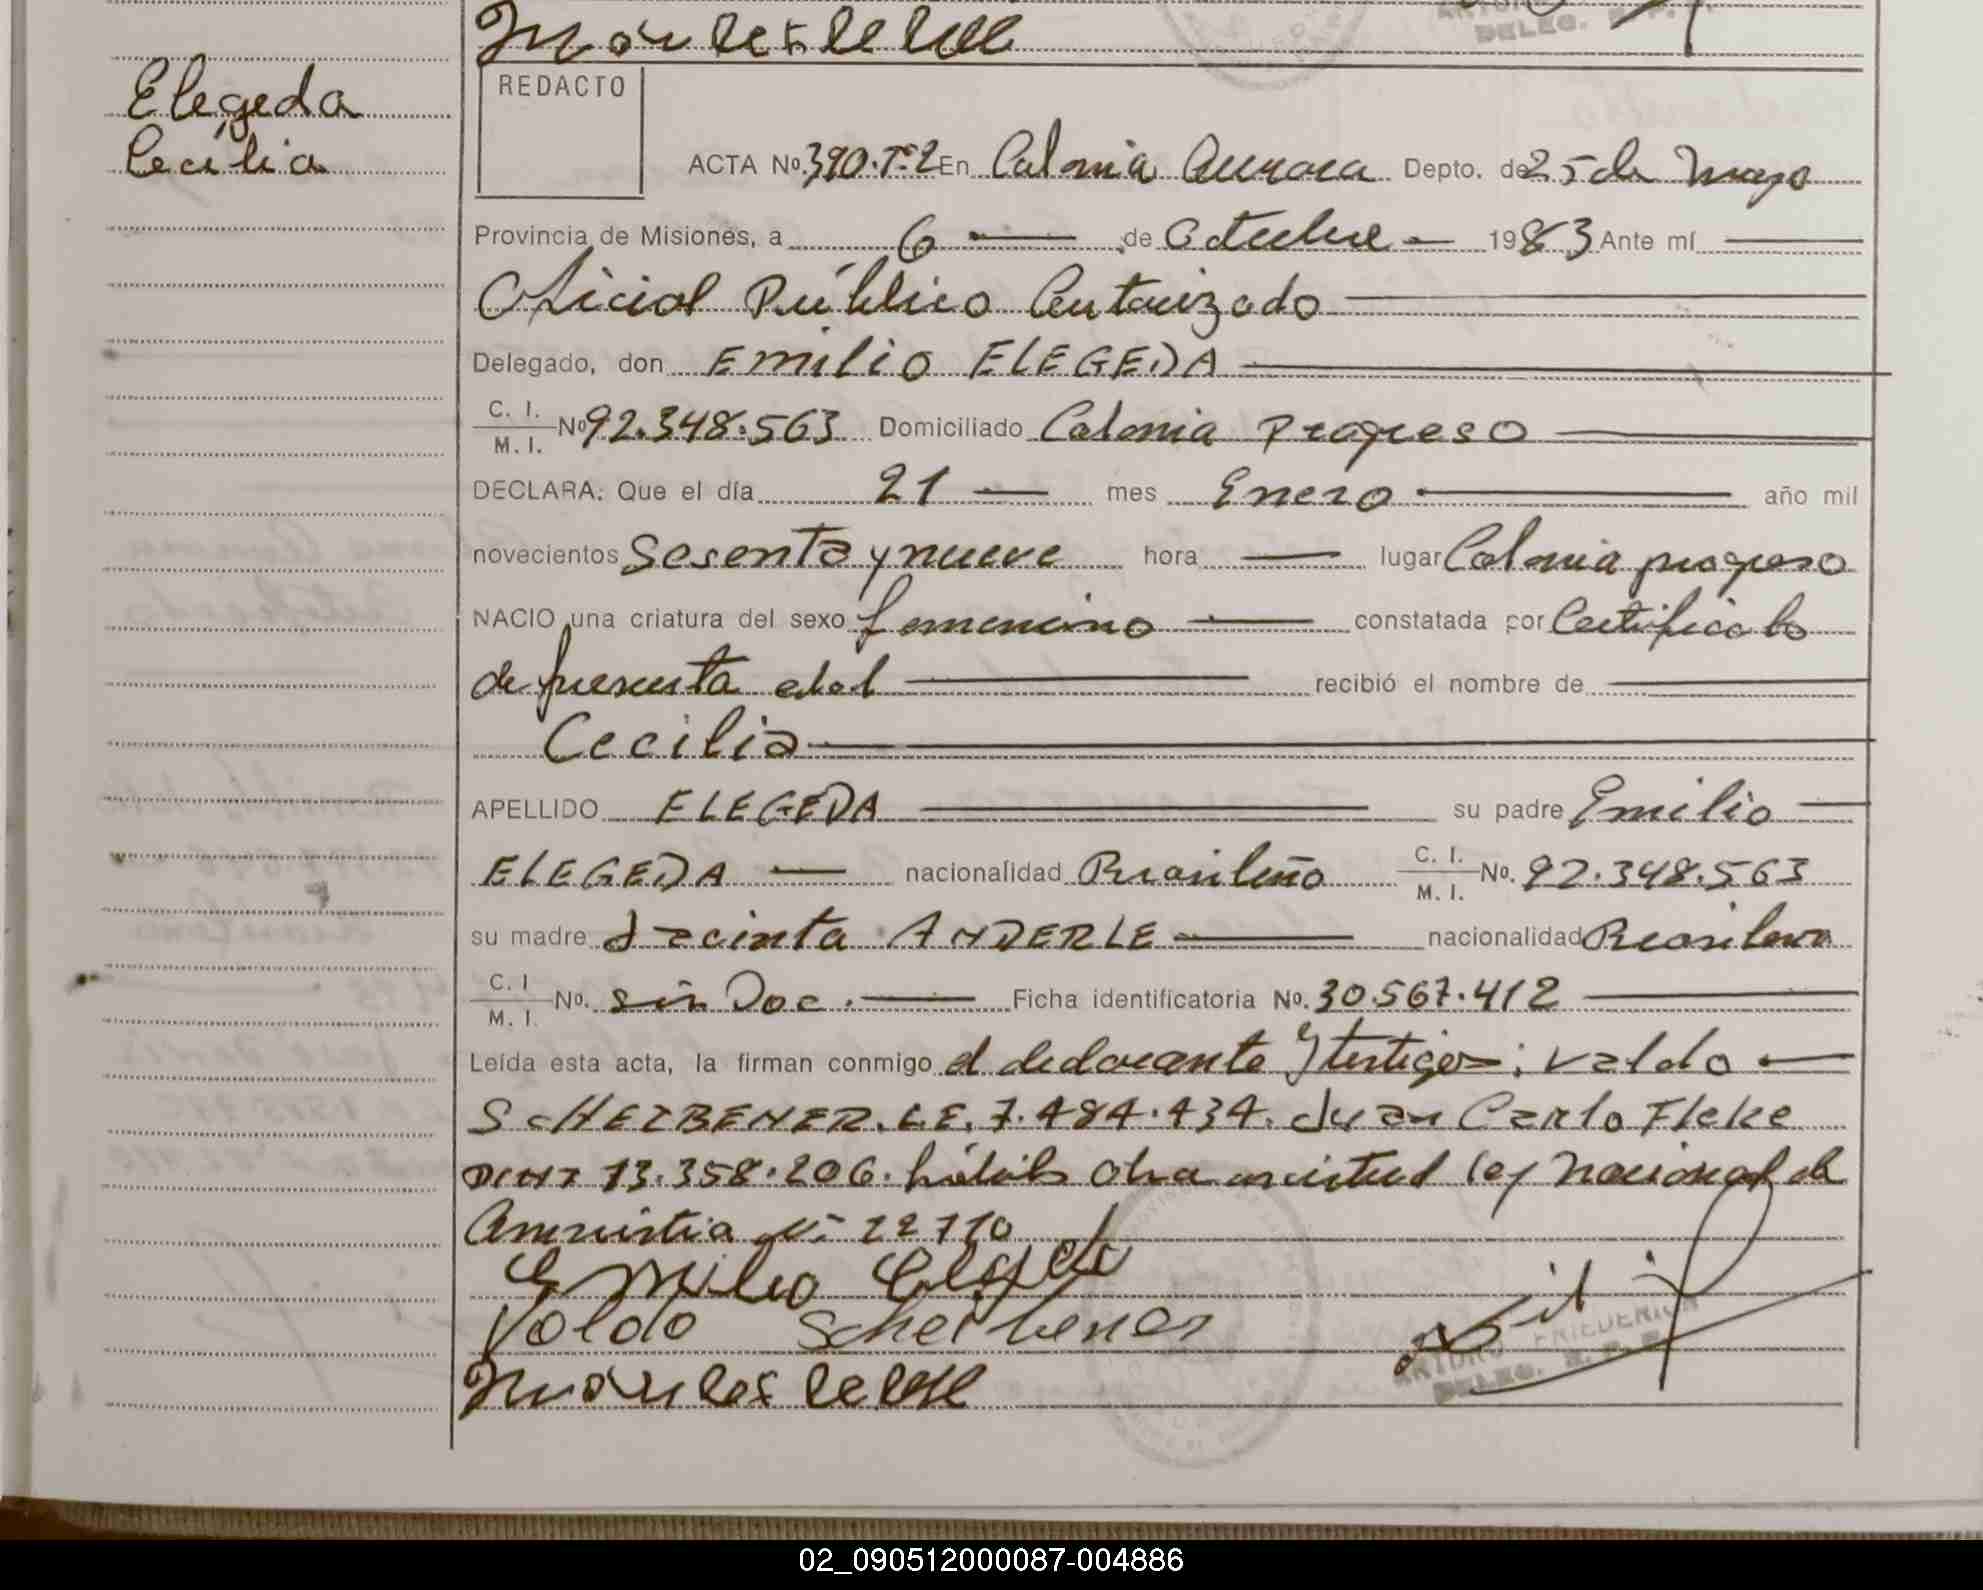 Elegeda
Cecilia
REDACTO
ACTA No. 390.Tº2 En Colonia Aurora Depto. de 25 de Mayo
Provincia de Misiones, a 6 de Octubre 1983 Ante mí
Oficial Público Autorizado
Delegado, don Emilio ELEGEDA
C. I.
M. I. Nº 92.348.563 Domiciliado Colonia Progreso
DECLARA: Que el día 21 mes Enero año mil
novecientos Sesenta y nueve hora lugar Colonia progreso
NACIO una criatura del sexo femenino constatada por Certificado
de presunta edad recibió el nombre de
Cecilia
APELLIDO ELEGEDA su padre Emilio
ELEGEDA nacionalidad Brasileño C. I. M. I. No. 92.348.563
su madre Jacinta ANDERLE nacionalidad Brasilera
C. I M. I. No. sin Doc. Ficha identificatoria No. 30.567.412
Leída esta acta, la firman conmigo el declarante y testigos: Valdo
SCHEIBENER. L.E. 7.484.434. Juan Carlo Fleke
DNI 13.358.206. hábiles Obra en virtud ley Nacional de
Amnistia Nº 22710
Emilio Elegeda
Valdo Scheibener
ARTURO FRIEDERICH
DELEG. R. P.
02_090512000087-004886